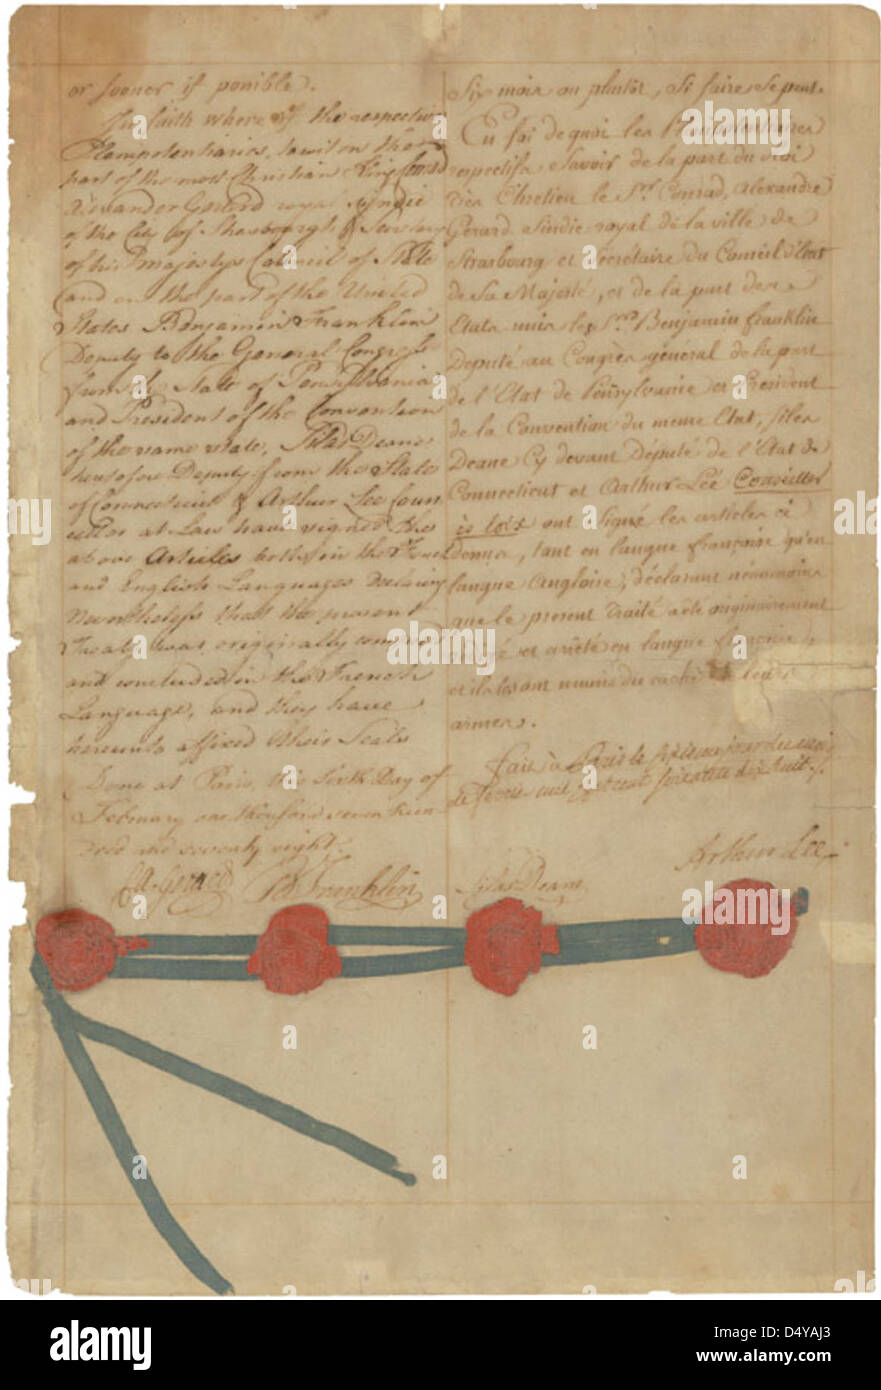 or sooner if possible.
In faith where of the respective
Plenipotentiaries, to wit on the
part of the most Christian King Conrad
Alexander Gerard royal syndic
of the City of Strasbourgh & Secretary
of his majestys Council of State
and on the part of the United
States Benjamin Franklin
Deputy to the General Congress
from the State of Pensylvania
and President of the Convention
of the same state, Silas Deane
heretofore Deputy from the State
of Connecticut & Arthur Lee Coun
cellor at Law have signed the
above Articles both in the French
and English Languages declaring
Nevertheless that the present
Treaty was originally composed
and concluded in the French
Language, and they have
hereunto affixed their Seals
Done at Paris, this sixth Day of
February one thousand seven hun
dred and seventy eight.
C. A. Gerard B Franklin
Six mois ou plutôt, Si faire Se peut.
En foi de quoi les Plenipotentiaires
respectifs, Savoir de la part du Roi
très Chretien le Sr. Conrad, Alexandre
Gerard Sindic royal de la ville de
Strasbourg et Secrétaire du Conseil d'Etat
de Sa Majesté, et de la part des
Etats unis les Srs. Benjamin franklin
Deputé au Congrès général de la part
de l'Etat de Pensylvanie et President
de la Convention du meme Etat, Silas
Deane Cy devant Député de l'Etat de
Connecticut et Arthur Lée Conseiller
ès loix ont Signé les articles ci
dessus, tant en langue françoise qu'en
langue Angloise, déclarant néanmoins
que le present Traité a été originairement
rédigé et arrêté en langue françoise,
et ils les ont munis du cachet de leurs
armes.
fait à Paris le sixieme jour du mois
de fevrier mil sept cent soixante dix huit.
Silas Deane Arthur Lee
alamy
Image ID: D4YAJ3
www.alamy.com